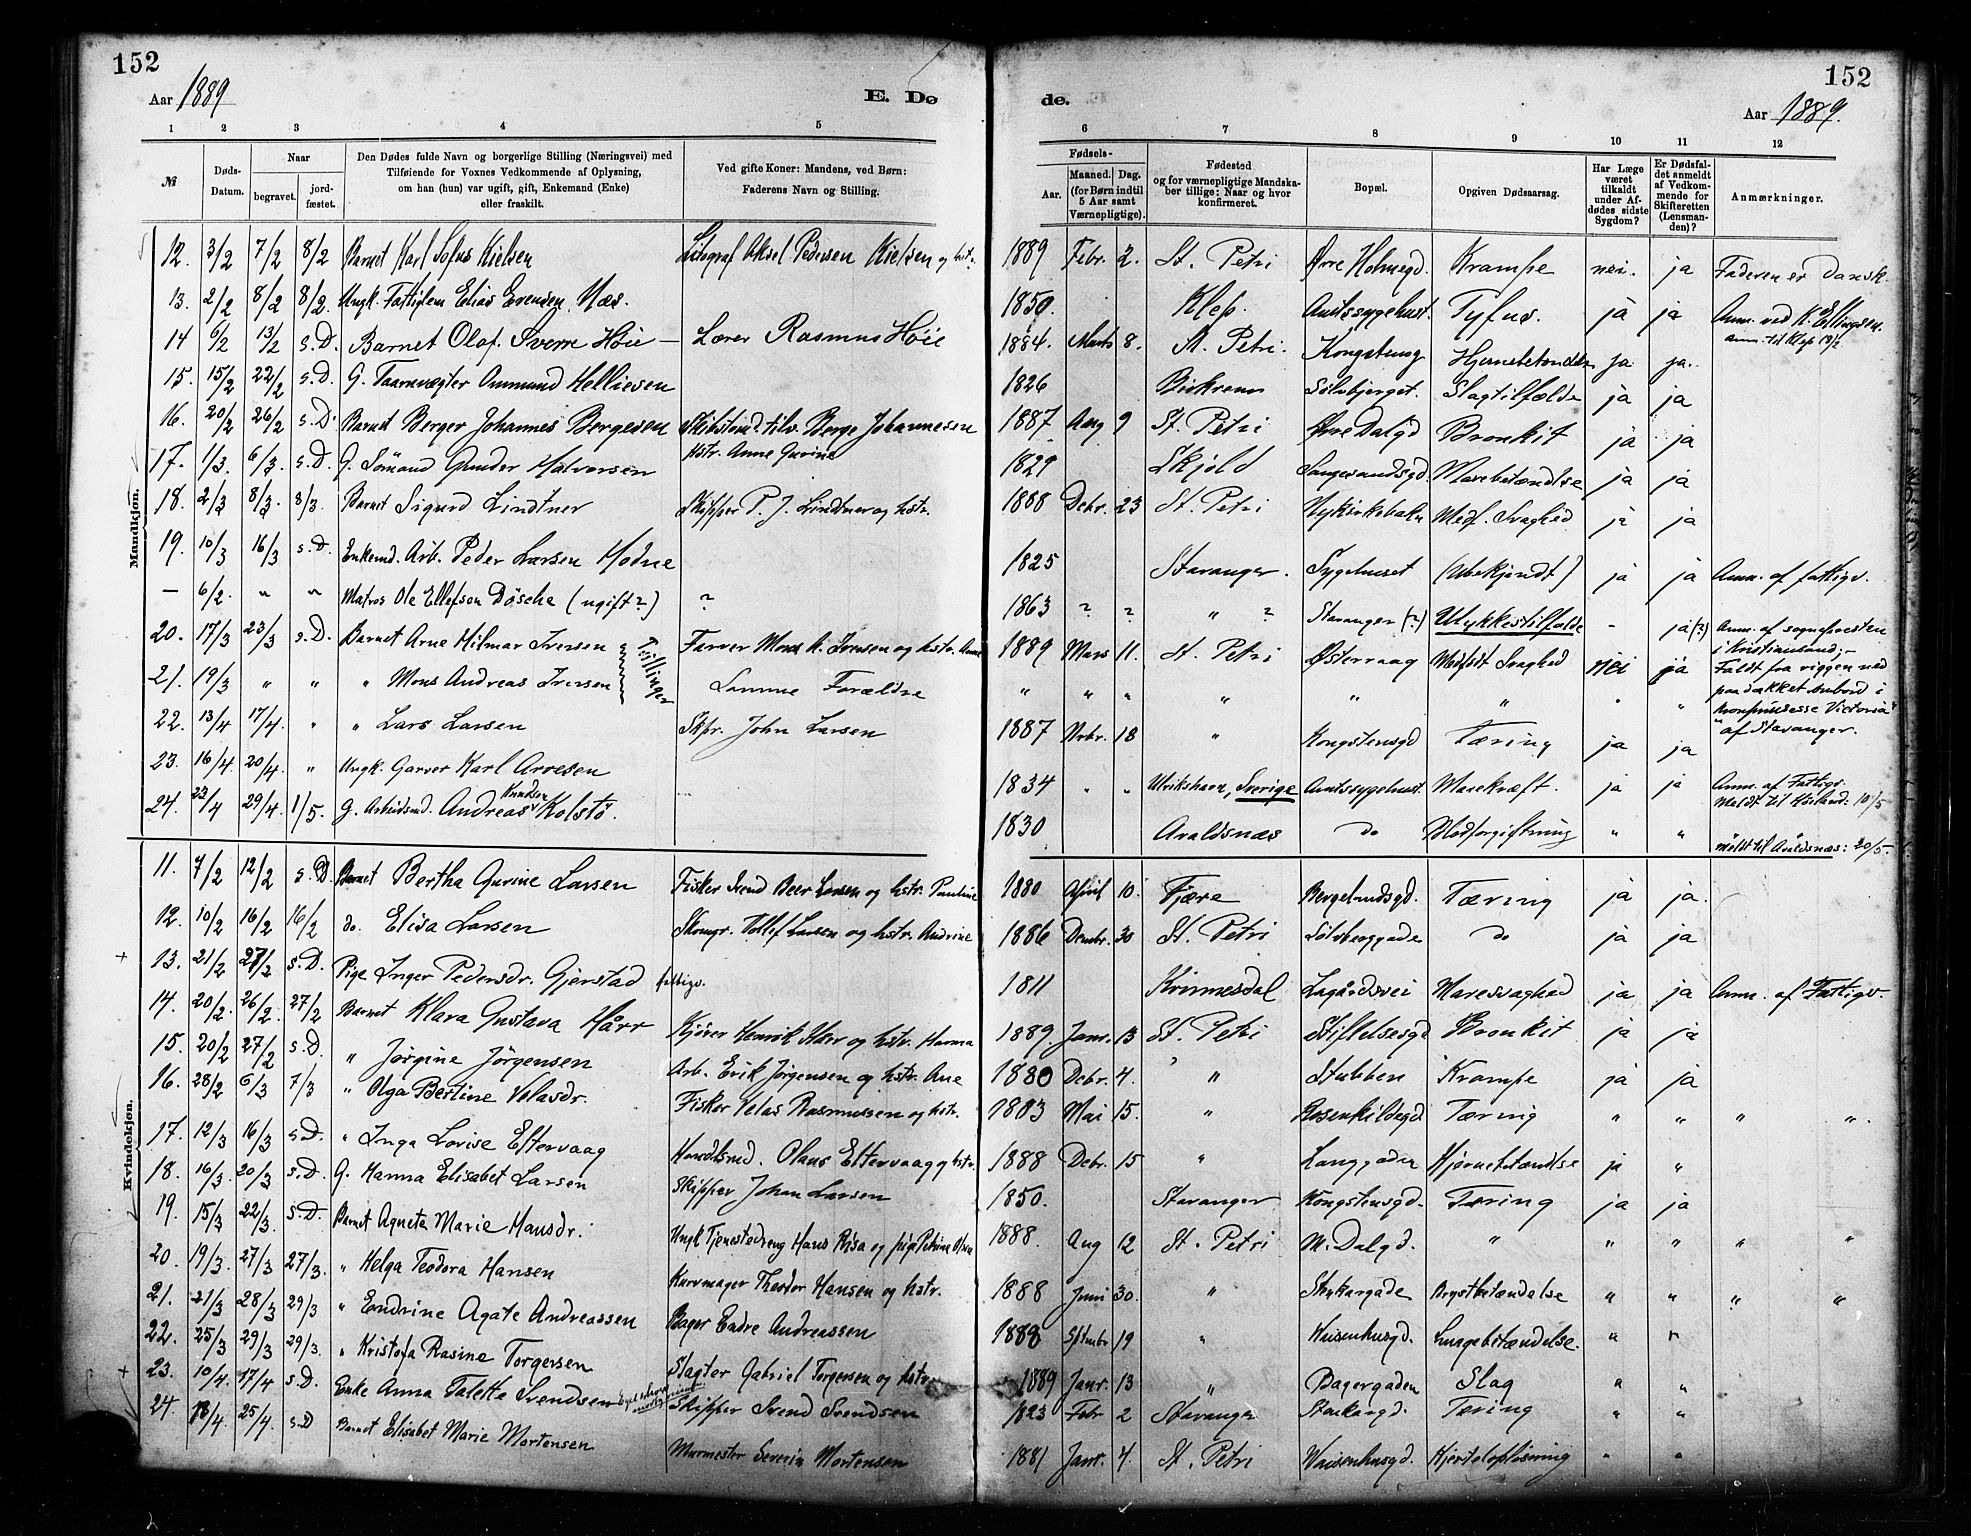 152
152
Aar 1889
E. Dø
de.
Aar 1889.
1 2 3 4 5
6 7 8 9 10 11 12
№
Døds-Datum.
Naar
begravet.
jord-fæstet.
Den Dødes fulde Navn og borgerlige Stilling (Næringsvei) med
Tilføiende for Voxnes Vedkommende af Oplysning,
om han (hun) var ugift, gift, Enkemand (Enke)
eller fraskilt.
Ved gifte Koner: Mandens, ved Børn:
Faderens Navn og Stilling.
Fødsels-
Aar.
Maaned. Dag.
(for Børn indtil
5 Aar samt
Værnepligtige).
Fødested
og for værnepligtige Mandska-
ber tillige: Naar og hvor
konfirmeret.
Bopæl.
Opgiven Dødsaarsag.
Har Læge
været
tilkaldt
under Af-
dødes sidste
Sygdom?
Er Dødsfal-
det anmeldt
af Vedkom-
mende for
Skifteretten
(Lensman-
den)?
Anmærkninger.
Mandkjøn.
12. 3/2 7/2 8/2 Barnet Karl Sofus Kielsen Litograf Aksel Pedersen Kielsen og hstr. 1889 Febr. 2. St. Petri Øvre Holmegd. Krampe nei. ja Faderen er Dansk.
13. 2/2 8/2 8/2. Ungk. Fattiglem Elias Evensen Næs. 1850. Klep. Amtssygehust. Tyfus. ja ja Anm. ved K. Ellingsen.
anm. til Klep 13/2
14 6/2 13/2 s.D. Barnet Olaf Sverre Høie — Lærer Rasmus Høie 1884. Marts 8. St. Petri. Kongsteng Hjernebetændelse ja ja.
15. 15/2 22/2 s.D. G. Taarnvægter Ommund Helliesen 1826 Birkrem Sölvbjerget. Slagtilfælde ja ja
16. 20/2 26/2 s.D. Barnet Berger Johannes Bergesen Skibstömd. tilv. Berge Johannesen
hstr. Anne Gurine 1887 Aug 9 St. Petri Øvre Dalgd Bronkit ja ja
17. 1/3. 6/3. s.D. G. Sömand Gunder Halvorsen 1829 Skjold Langesandsgd. Mavebetændelse ja ja
18. 2/3 8/3. 8/3. Barnet Sigurd Lindtner Skipper P. J. Lindtner og hstr. 1888 Debr. 23 St. Petri Nykirkebakn Medf. Svaghed ja ja
19. 10/3 16/3 s.D. Enkemd. Arb. Peder Larsen Hodne 1825 Stavanger. Sygehuset (Ubekjendt) ja ja Anm. af fattigv.
— 6/2. " " Matros Ole Ellefsen Dösche (ugift?) ? 1863 ? ? " ? Stavanger (?) Ulykkestilfælde - ja (?) Anm. af sognepresten
i Kristiansand;-
Faldt fra riggen ned
paa dækket ombord i
"Kronprinsesse Victoria"
af Stavanger.
20. 17/3 23/3 s.D. Barnet Arne Hilmar Iversen Farver Mons A. Iversen og hstr. Anne 1889 Mars 11. St. Petri Østervaag Medfödt Svaghed nei ja
Tvillinger
21. 19/3 " " " Mons Andreas Iversen Samme Forældre " " " " " " " "
22. 13/4 17/4. " " Lars Larsen Skpr. John Larsen 1887 Nvbr. 18 " Kongstensgd Tæring ja ja
23. 16/4. 20/4. " Ungk. Garver Karl Arvesen 1834 " " Ulrikshavn, Sverige Amtssygehust. Mavekræft. ja ja Anm. af Fattigv.
24. 23/4 29/4 1/5. G. Arbeidsmd. Andreas Knudsen Kolstö 1830 Avaldsnæs do Blodforgiftning " " meldt til Avaldsnæs: 20/5.
Kvindekjøn.
11. 7/2 12/2 s.D. Barnet Bertha Gurine Larsen Fisker Svend Beer Larsen og hstr. Pauline 1880 April 10. Fjære Bergelandsgd. Tæring ja ja.
12. 10/2 16/2 16/2 do. Elisa Larsen Skomgr. Tollef Larsen og hstr. Andrine 1886 Dembr. 30 St. Petri Sölvberggade do ja ja
13. 21/2 27/2 s.D. Pige Inger Pedersdr. Gjerstad fattigv. 1811 Kvinnesdal Lagårdsvei Mavesvaghed ja ja Anm. af Fattigv.
14. 20/2. 26/2. 27/2 Barnet Klara Gustava Hårr Kjörer Henrik Hårr og hstr. Hanna 1889. Janr. 13 St. Petri Stiftelsesgd Bronkit ja ja
15. 20/2 27/2 s.D. " Jørgine Jørgensen Arb. Erik Jørgensen og hstr. Ane 1880 Debr. 4. " Stubben Krampe ja ja
16. 28/2 6/3 7/3 " Olga Bertine Velasdr. Fisker Velas Rasmussen og hstr. 1883 Mai 15. " Rosenkildegd. Tæring " " " ".
17. 12/3 16/3 s.D. " Inga Lovise Eftervaag Handelsmd. Olaus Eftervaag og hstr. 1888 Debr. 15 " Langgaden Hjernebetændelse ja "
18. 16/3. 20/3 s.D G. Hanna Elisabet Larsen Skipper Johan Larsen 1850. Stavanger Kongstensgd. Tæring ja ja
19. 15/3 22/3. s.D. Barnet Agneta Marie Hansdr. Ungk Tjenestedreng Hans Risa og pige Petrine Olsen 1888. Aug 12 St. Petri N. Dalgd. " " " " "
20. 19/3. 27/3 27/3. " Helga Teodora Hansen Kurvmager Theodor Hansen og hstr. 1888 Juni 30. " Stenkargade Brystbetændelse " " " "
21. 21/3 28/3 29/3 " Endrine Agate Andreassen Bager Endre Andreassen 1888 Sptmbr 19 " Waisenhusgd. Lungebetændelse. " "
22. 25/3 29/3 29/3. " Kristofa Rasine Torgersen Slagter Gabriel Torgersen og hstr. 1889 Janr. 13 " Bagergaden Slag " "
23. 10/4. 17/4 s.D. Enke Anna Talette Svendsen Skipper Svend Svendsen 1823 Febr 2 Stavanger Stenkargd. Tæring " "
24. 18/4. 25/4. s.D Barnet Elisabet Marie Mortensen Murmester Severin Mortensen 1881 Janr. 4. St. Petri Waisenhusgd. Hjerteloplösning " "